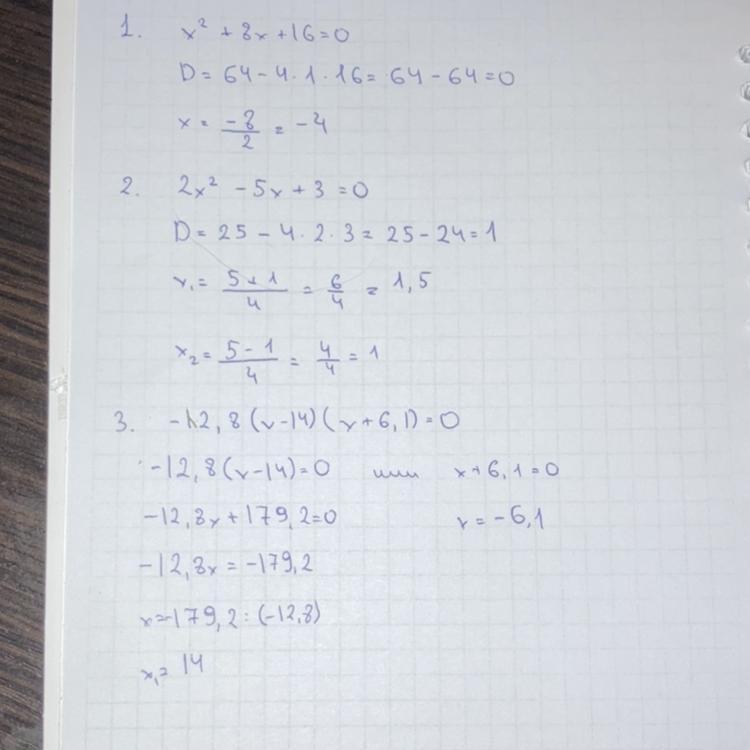 1. x² + 8x + 16 = 0
D = 64 - 4 · 1 · 16 = 64 - 64 = 0
x = -8/2 = -4
2. 2x² - 5x + 3 = 0
D = 25 - 4 · 2 · 3 = 25 - 24 = 1
x₁ = (5+1)/4 = 6/4 = 1,5
x₂ = (5-1)/4 = 4/4 = 1
3. -12,8(x-14)(x+6,1) = 0
-12,8(x-14) = 0 или x+6,1 = 0
-12,8x + 179,2 = 0 x = -6,1
-12,8x = -179,2
x = -179,2 : (-12,8)
x₁ = 14